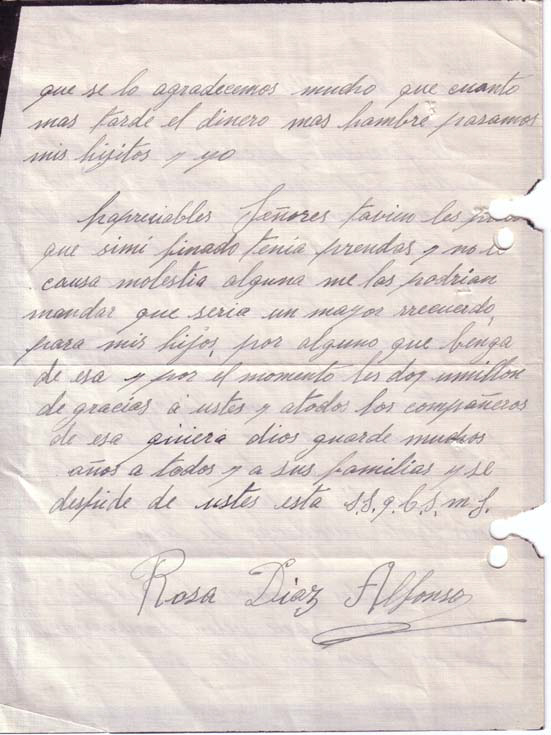 que se lo agradecemos mucho que cuanto
mas tarde el dinero mas hambre pasamos
mis hijitos y yo
Señores tavien les
que simi finado tenia prendas y no le
causa molestia alguna me las podrian
mandar que seria un mayor rrecuerdo,
para mis hijos, por alguno que benga
de esa y por el momento les doy unmillon
de gracias a ustes y atodos los compañeros
de esa quiera dios guarde muchos
años a todos y a sus familias y se
despide de ustes esta S.S.q.b.S.m.S.
Rosa Diaz Alfonso